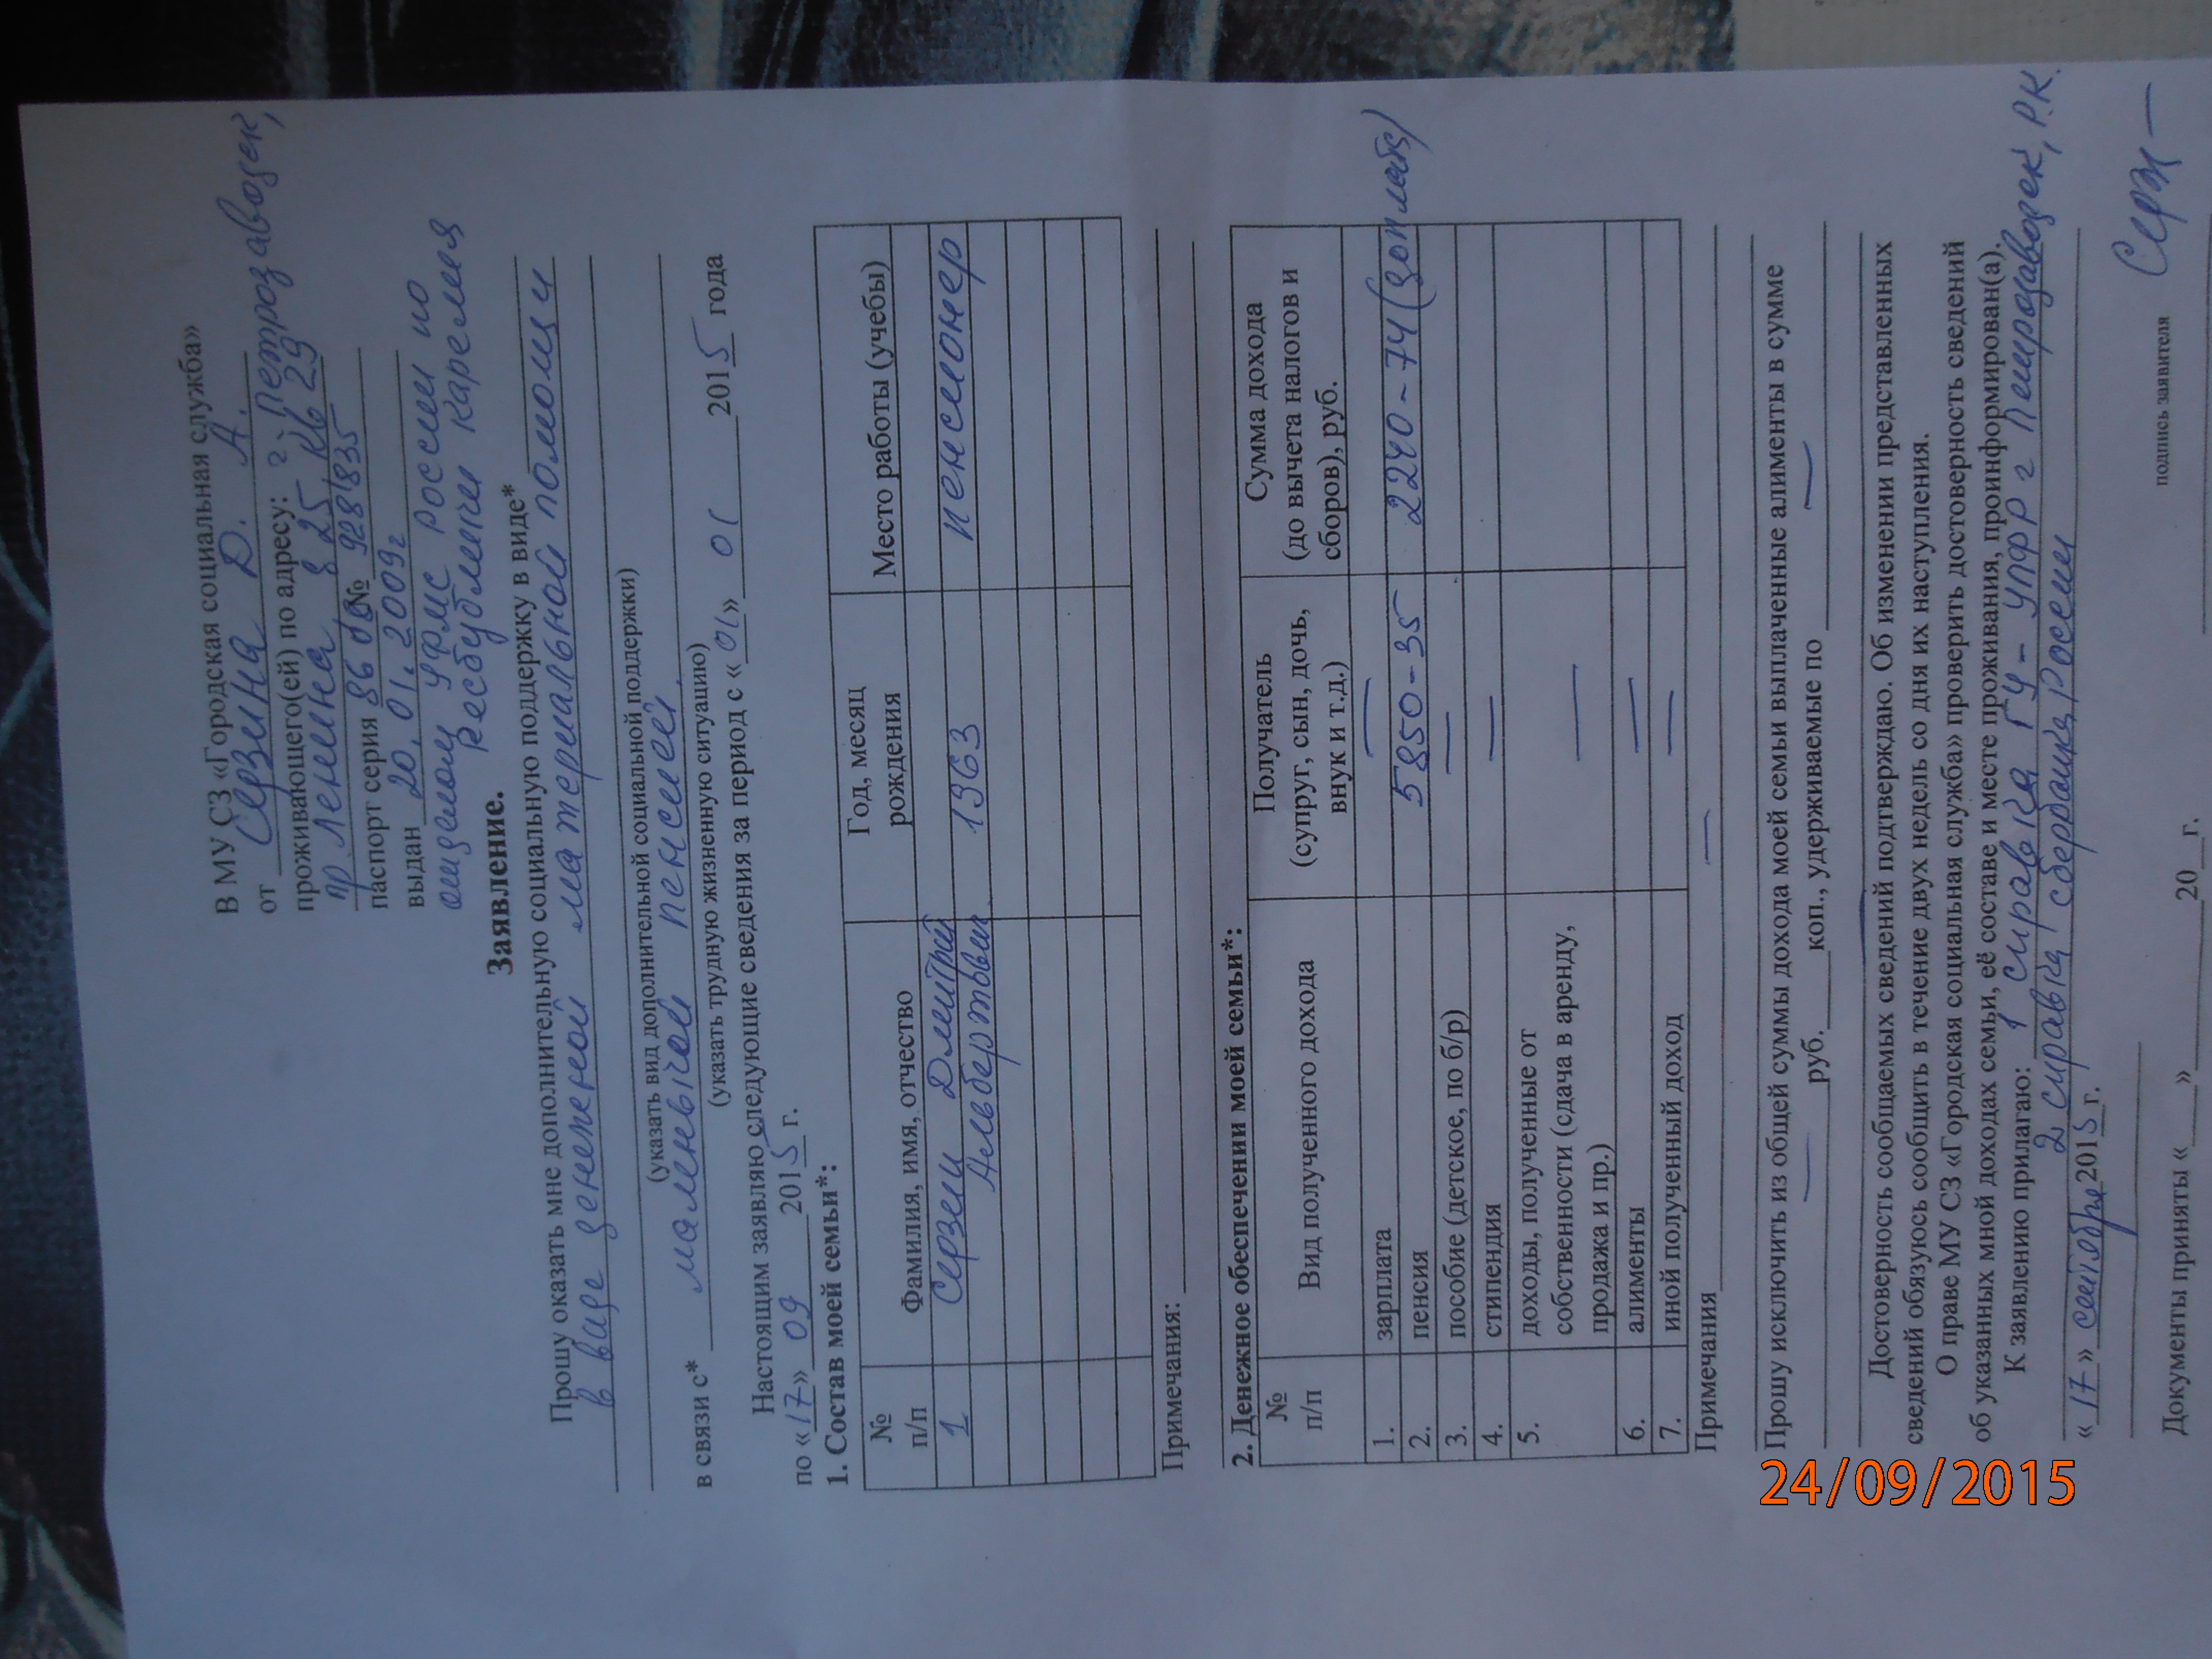 В МУ СЗ «Городская социальная служба»
от Серзина Д. А.
проживающего(ей) по адресу: г. Петрозаводск,
пр Ленина д 25 кв 29
паспорт серия 86 № 928835
выдан 20.01.2009г
отделом УФМС России по
Республике Карелия
Заявление.
Прошу оказать мне дополнительную социальную поддержку в виде*
в виде денежной материальной помощи
(указать вид дополнительной социальной поддержки)
в связи с* маленькой пенсией.
(указать трудную жизненную ситуацию)
Настоящим заявляю следующие сведения за период с «01» 01 2015 года
по «17» 09 2015 г.
1. Состав моей семьи*:
№ п/п Фамилия, имя, отчество Год, месяц рождения Место работы (учебы)
1 Серзин Дмитрий 1963 пенсионер
Альбертович
Примечания:
2. Денежное обеспечении моей семьи*:
№ п/п Вид полученного дохода Получатель (супруг, сын, дочь, внук и т.д.) Сумма дохода (до вычета налогов и сборов), руб.
1. зарплата —
2. пенсия 5850-35 2240-74 (доплата)
3. пособие (детское, по б/р) —
4. стипендия —
5. доходы, полученные от собственности (сдача в аренду, продажа и пр.) —
6. алименты —
7. иной полученный доход —
Примечания —
Прошу исключить из общей суммы дохода моей семьи выплаченные алименты в сумме
— руб. коп., удерживаемые по —
Достоверность сообщаемых сведений подтверждаю. Об изменении представленных
сведений обязуюсь сообщить в течение двух недель со дня их наступления.
О праве МУ СЗ «Городская социальная служба» проверить достоверность сведений
об указанных мной доходах семьи, её составе и месте проживания, проинформирован(а).
К заявлению прилагаю: 1 справка ГУ-УПФР г Петрозаводск, Р.К.
2 справка сбербанка России
«17» сентября 2015 г.
Серз —
подпись заявителя
Документы приняты « » 20 г.
24/09/2015